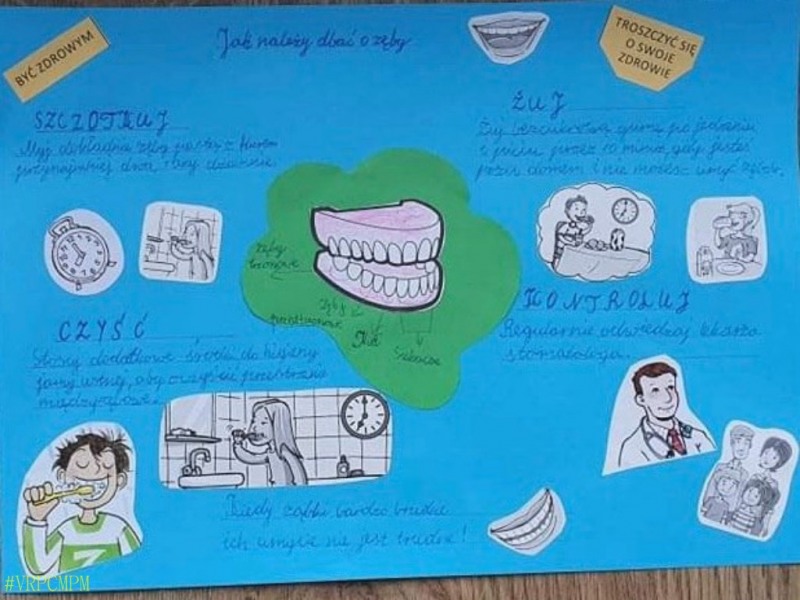 BYĆ ZDROWYM
Jak należy dbać o zęby
TROSZCZYĆ SIĘ
O SWOJE
ZDROWIE
SZCZOTKUJ
Myj dokładnie zęby pastą z fluorem
przynajmniej dwa razy dziennie.
ŻUJ
Żuj bezcukrową gumę po jedzeniu
i piciu przez 10 minut, gdy jesteś
poza domem i nie możesz umyć zębów.
zęby
trzonowe
zęby
przedtrzonowe
Kła
Siekacze
CZYŚĆ
Stosuj dodatkowe środki do higieny
jamy ustnej, aby oczyścić przestrzenie
międzyzębowe.
KONTROLUJ
Regularnie odwiedzaj lekarza
stomatologa.
Kiedy ząbki bardzo brudne
ich umycie nie jest trudne!
#VRPCMPM